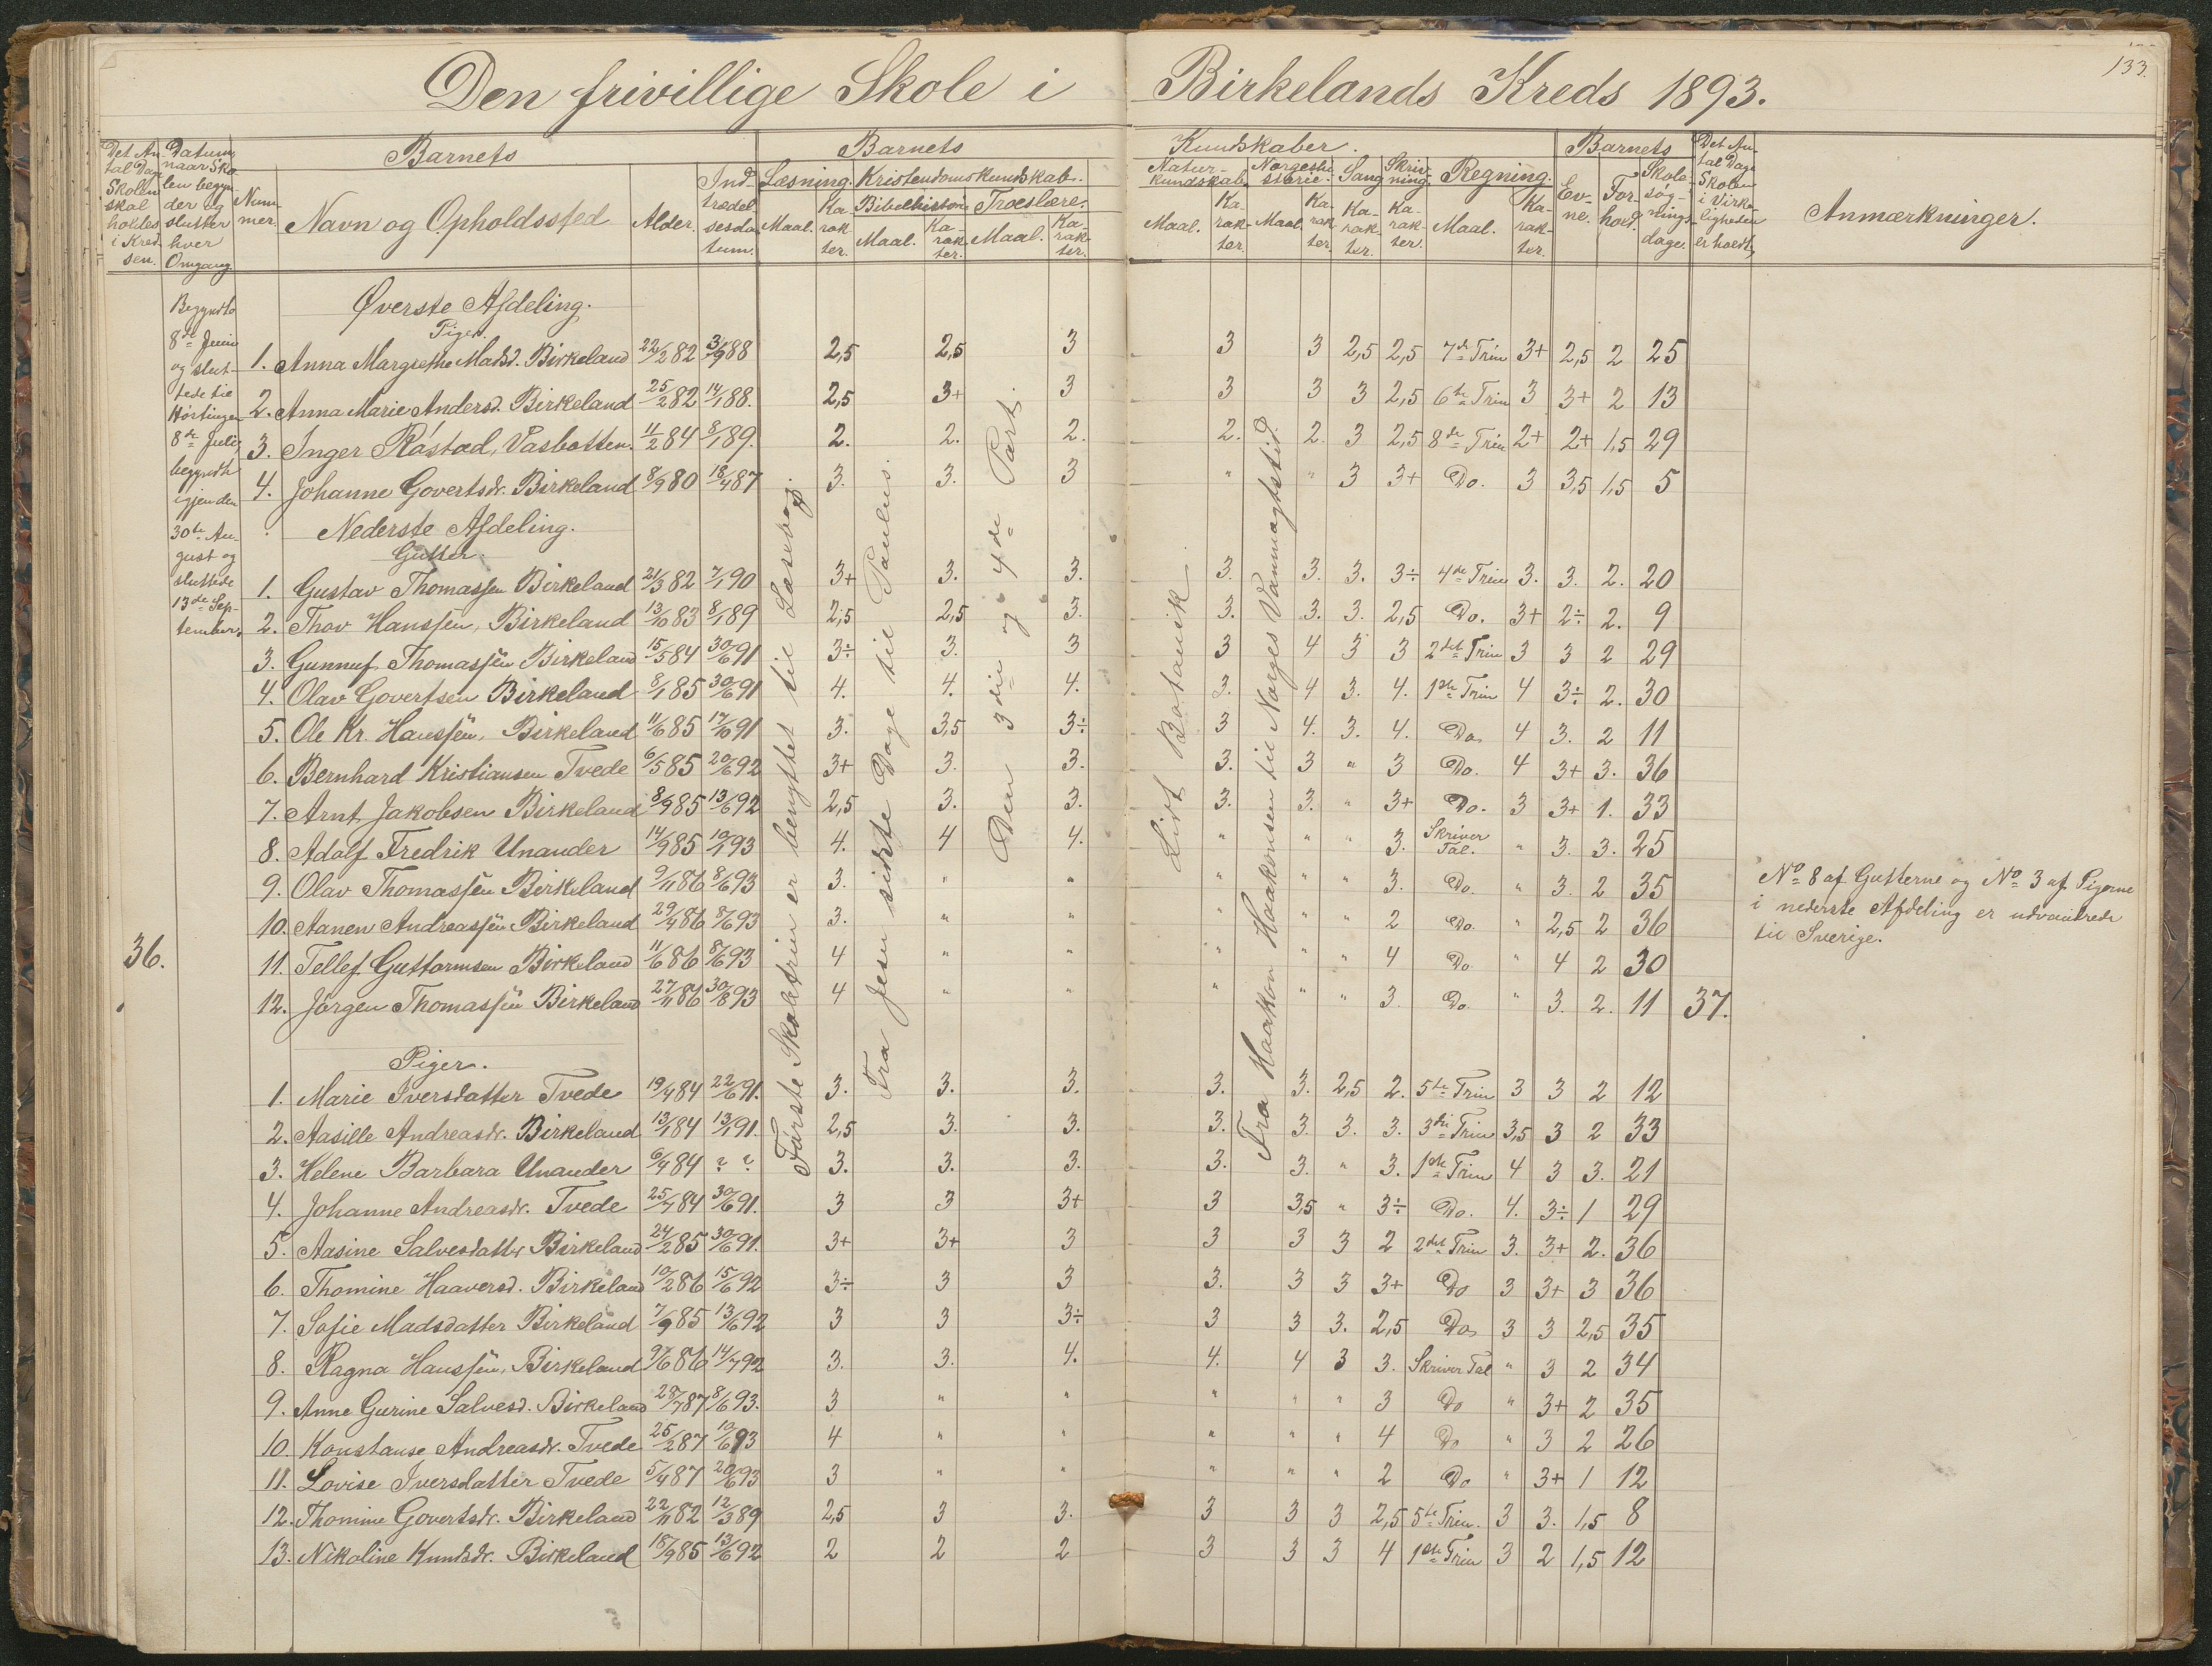 133.
Den frivillige Skole i Birkelands Kreds 1893.
Det An-tal Dage Skolen skal holdes i Kred-sen.
Datum, naar Sko-len begyn-der og slutter hver Omgang.
Num-mer.
Barnets
Navn og Opholdssted
Alder.
Ind-trædel-sesda-tum.
Barnets Kundskaber.
Læsning. Maal. Ka-rak-ter.
Kristendomskundskab.
Bibelhistorie Maal. Ka-rak-ter.
Troeslære. Maal. Ka-rak-ter.
Natur-kundskab. Maal. Ka-rak-ter.
Norgeshi-storie. Maal. Ka-rak-ter.
Sang Ka-rak-ter.
Skriv-ning. Ka-rak-ter.
Regning. Maal. Ka-rak-ter.
Barnets
Ev-ne. For-hold. Skole-søg-nings-dage.
Det An-tal Dage Skolen i Virke-ligheden er holdt,
Anmærkninger.
Begyndte
8de Juni
og slut-
tede til
Høstingen
8de Juli,
begyndte
igjen den
30te Au-
gust og
sluttede
13de Sep-
tember.
36.
Øverste Afdeling.
Piger.
1. Anna Margrethe Madsd. Birkeland 22/2 82 3/9 88 2,5 2,5 3 3 3 2,5 2,5 7de Trin 3+ 2,5 2 25
2. Anna Marie Andersd. Birkeland 25/2 82 14/1 88. 2,5 3+ 3 3 3 3 2,5 6te Trin 3 3+ 2 13
3. Inger Råstad, Vasbotten. 11/2 84 8/1 89. 2. 2. 2. 2. 2. 3 2,5 8de Trin 2+ 2+ 1,5 29
4. Johanne Govertsdr. Birkeland 8/9 80 18/4 87 3. 3. 3 " " 3 3+ Do. 3 3,5 1,5 5
Nederste Afdeling.
Gutter.
1. Gustav Thomassen Birkeland 21/3 82 7/1 90 3+ 3. 3. 3. 3. 3. 3÷ 4de Trin 3. 3. 2. 20
2. Thov Hanssen, Birkeland 13/10 83 8/1 89 2,5 2,5 3. 3. 3. 3. 2,5 Do. 3+ 2÷ 2. 9
3. Gunnuf Thomassen Birkeland 15/5 84 30/6 91 3÷ 3. 3 3 4 3 3 2det Trin 3 3 2 29
4. Olav Govertsen Birkeland 8/1 85 30/6 91 4. 4. 4. 3. 4 3. 4. 1ste Trin 4 3÷ 2. 30
5. Ole Kr. Hanssen, Birkeland 11/6 85 17/6 91 3. 3,5 3÷ 3 4. 3. 4. Do. 4 3. 2 11
6. Bernhard Kristiansen Tvede 6/5 85 20/6 92 3+ 3. 3. 3. 3 " 3 Do. 4 3+ 3. 36
7. Arnt Jakobsen Birkeland 8/9 85 13/6 92 2,5 3. 3. 3. 3. " 3+ Do. 3 3+ 1. 33
8. Adolf Fredrik Unander 14/9 85 10/1 93 4. 4 4. " " " 3. Skriver Tal. " 3. 3. 25
9. Olav Thomassen Birkeland 9/11 86 8/6 93 3. " " " " " 3. Do. " 3. 2 35
10. Aanen Andreassen Birkeland 29/4 86 8/6 93 3. " " " " " 2 Do. " 2,5 2 36
11. Tellef Guttormsen Birkeland 11/6 86 8/6 93 4 " " " " " 4 Do. " 4 2 30
12. Jørgen Thomassen Birkeland 27/11 86 30/8 93 4 " " " " " 3. Do. " 3. 2. 11 37.
Piger.
1. Marie Iversdatter Tvede 19/4 84 22/6 91. 3. 3. 3. 3. 3. 2,5 2. 5te Trin 3 3 2 12
2. Aasille Andreasdr. Birkeland 13/1 84 13/1 91. 2,5 3. 3. 3. 3. 3. 3. 3die Trin 3,5 3 2 33
3. Helene Barbara Unander 6/4 84 ? ? 3. 3. 3. 3. 3. " 3. 1ste Trin 4 3 3. 21
4. Johanne Andreasdr. Tvede 25/7 84 30/6 91. 3 3 3+ 3 3,5 " 3÷ Do. 4. 3÷ 1 29
5. Aasine Salvesdatter Birkeland 24/2 85 30/6 91. 3+ 3+ 3 3 3 3 2 2det Trin 3. 3+ 2. 36
6. Thomine Haaversd. Birkeland 10/2 86 15/6 92 3÷ 3 3 3. 3 3 3+ Do 3 3+ 3 36
7. Sofie Madsdatter Birkeland 7/9 85 13/6 92 3 3 3÷ 3 3 3. 2,5 Do. 3 3 2,5 35
8. Ragna Hanssen, Birkeland 9/6 86 14/7 92 3. 3. 4. 4. 4 3 3. Skriver Tal " 3 2 34
9. Anne Gurine Salvesd. Birkeland 28/7 87 8/6 93. 3 " " " " " 3 Do " 3+ 2 35
10. Konstanse Andreasdr. Tvede 25/2 87 10/6 93 4 " " " " " 4 Do " 3 2 26
11. Lovise Iversdatter Tvede 5/4 87 20/6 93 3 " " " " " 2 Do " 3+ 1 12
12. Thomine Govertsdr. Birkeland 22/11 82 12/3 89 2,5 3 3. 3 3 3 2,5 5te Trin. 3 3. 1,5 8
13. Nikoline Knudsdr. Birkeland 18/9 85 13/6 92 2 2 2 3 3 3 4 1ste Trin 3 2 1,5 12
Første Skoletrin er benyttet til Læsebog.
Fra Jesu sidste Dage til Paulus.
Den 3die og 4de Part.
Lidt Botanik
Fra Haakon Haakonsen til Norges Vanmagtstid.
No 8 af Gutterne og No 3 af Pigerne
i nederste Afdeling er udvandrede
til Sverige.